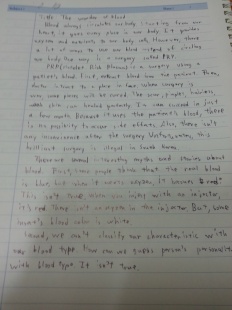 Title: The wonder of blood
Blood always circulates our body. Starting from our
heart, it goes every place in our body. It provides
oxygen and nutrients to our body cell. However, there
a lot of ways to use our blood instead of circling
our body. One way is a surgery called PRP.
PRP (Platelet Rich Plasma) is a surgery using a
patient's blood. First, extract blood from the patient. Then,
doctor inject to a place in face. When surgery is
some parts will be cured. The scar, pimple,
skin can healed perfectly. It can cured in just
a few months. Because it uses the patient's blood, there
is no possibility to occur side effects. Also, there isn't
any inconvenience after the surgery. Unfortunately, this
brilliant surgery is illegal in South Korea.
There are several interesting myths and stories about
blood. First, some people think that the real blood
is blue, but when it meets oxygen, it becomes red.
This isn't true. When you inject with an injector,
it's red. There isn't oxygen in the injector. But, some
insect's blood color is white.
Second, we can't classify our characteristic with
our blood type. How can we guess person's personality
with blood type. It isn't true.